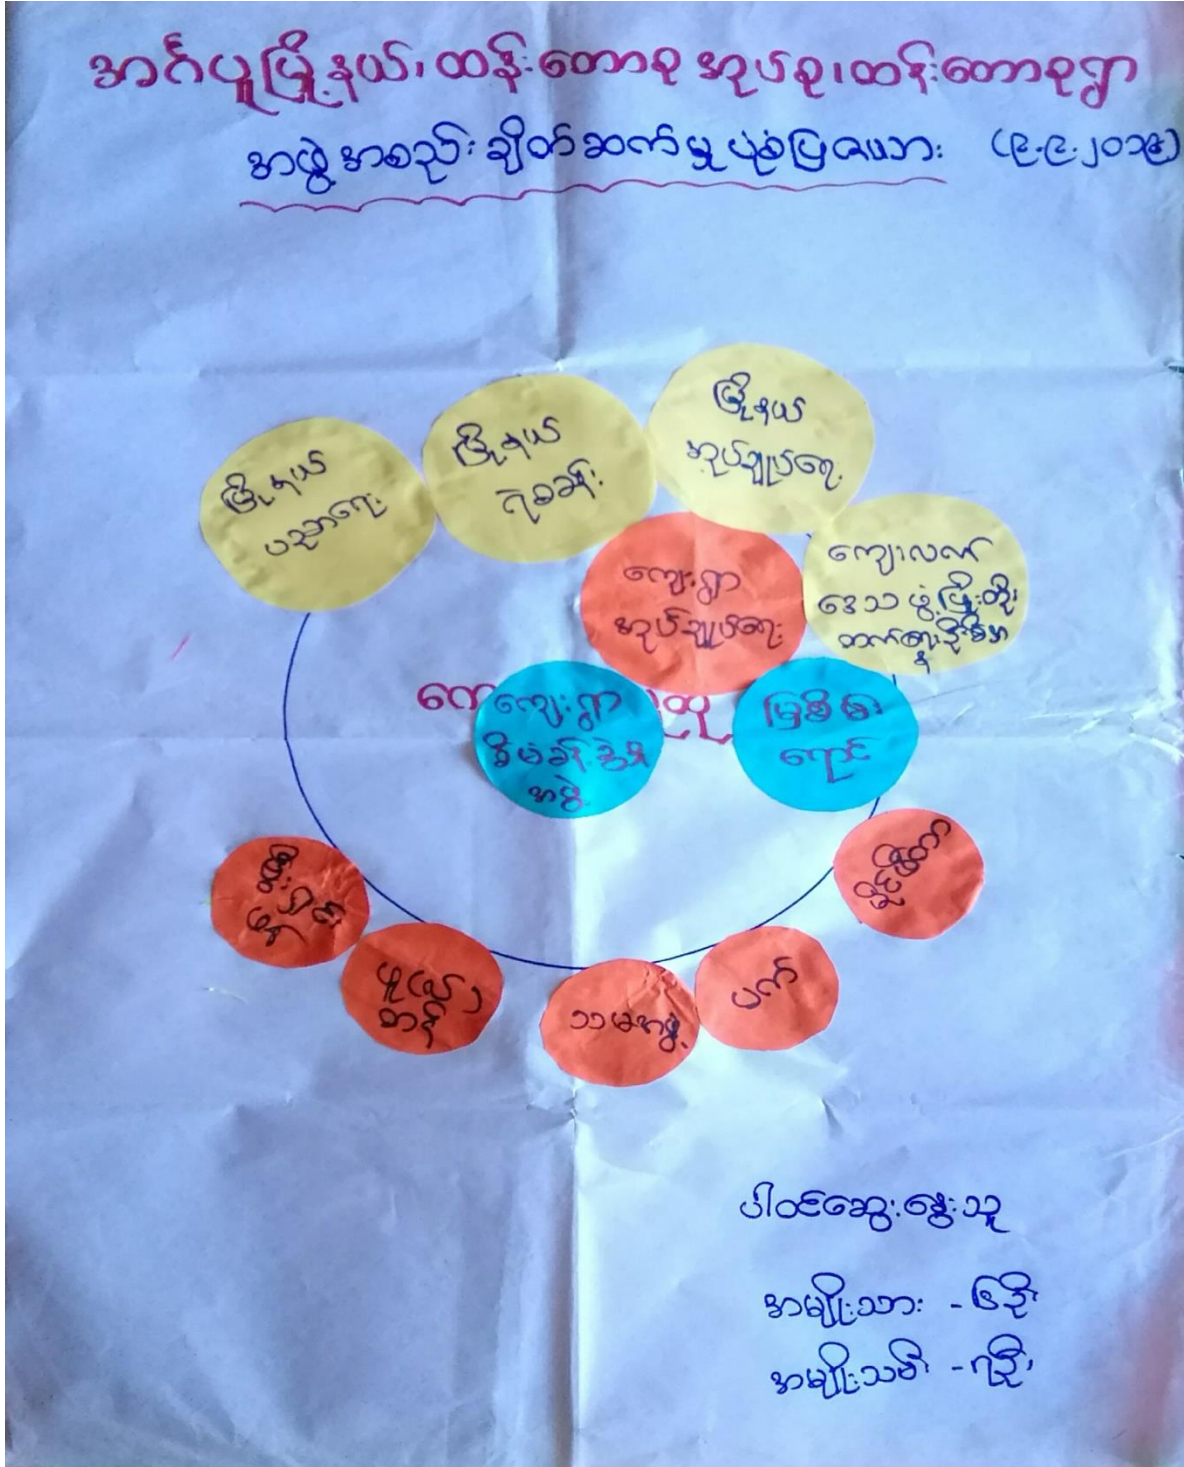 အင်္ဂပူမြို့နယ်၊ ထန်းတောစု အုပ်စု၊ ထန်းတောစုရွာ
အဖွဲ့အစည်း ချိတ်ဆက်မှု ပုံစံပြဇယား (၉.၉.၂၀၁၉)
မြို့နယ်
ပညာရေး
မြို့နယ်
ရဲစခန်း
မြို့နယ်
အုပ်ချုပ်ရေး
ကျေးလက်
ဒေသ ဖွံ့ဖြိုးတိုး
တက်ရေးဦးစီးဌာန
ကျေးရွာ
အုပ်ချုပ်ရေး
ကျေးရွာ
စီမံခန့်ခွဲမှု
အဖွဲ့
မြစိမ်း
ရောင်
ပက်
ပါဝင်ဆွေးနွေးသူ
အမျိုးသား - ၆ဦး
အမျိုးသမီး - ၇ဦး